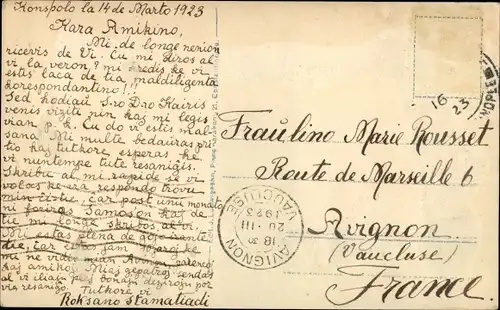 Konspolo la 14 de Marto 1923
Kara Amikino,
Mi de longe nenion
ricevis de Vi. Ĉu mi diros al
vi la veron? mi kredis ke vi
estis laca de tia maldiligenta
korespondantino!!"
Sed hodiaŭ S-ro D-ro Kairis
venis viziti nin kaj mi legis
vian p.k. Ĉu do vi estis mal-
sana. Mi multe bedaŭras pri
tio kaj tutkore esperas ke
vi nuntempe tute resaniĝis.
Skribu al mi rapide se vi
volas ke respondo trovu
min ĉi tie, ĉar post unu monato
ni foriros Samoson kaj de
tie mi longe skribos al vi.
Mi estas plena de ĝojo irante
tie, ĉar
mi ne vidis mian parencoj
kaj amikoj. Miaj gepatroj sendas
al vi siajn bonajn dezirojn por
via resaniĝo. Tutkore vi
Roksano Stamatiadi
Fraŭlino Marie Rousset
Route de Marseille 6
Avignon
(Vaucluse)
France.
16
23
NOPLE
AVIGNON
18 30
20 - III
1923
VAUCLUSE